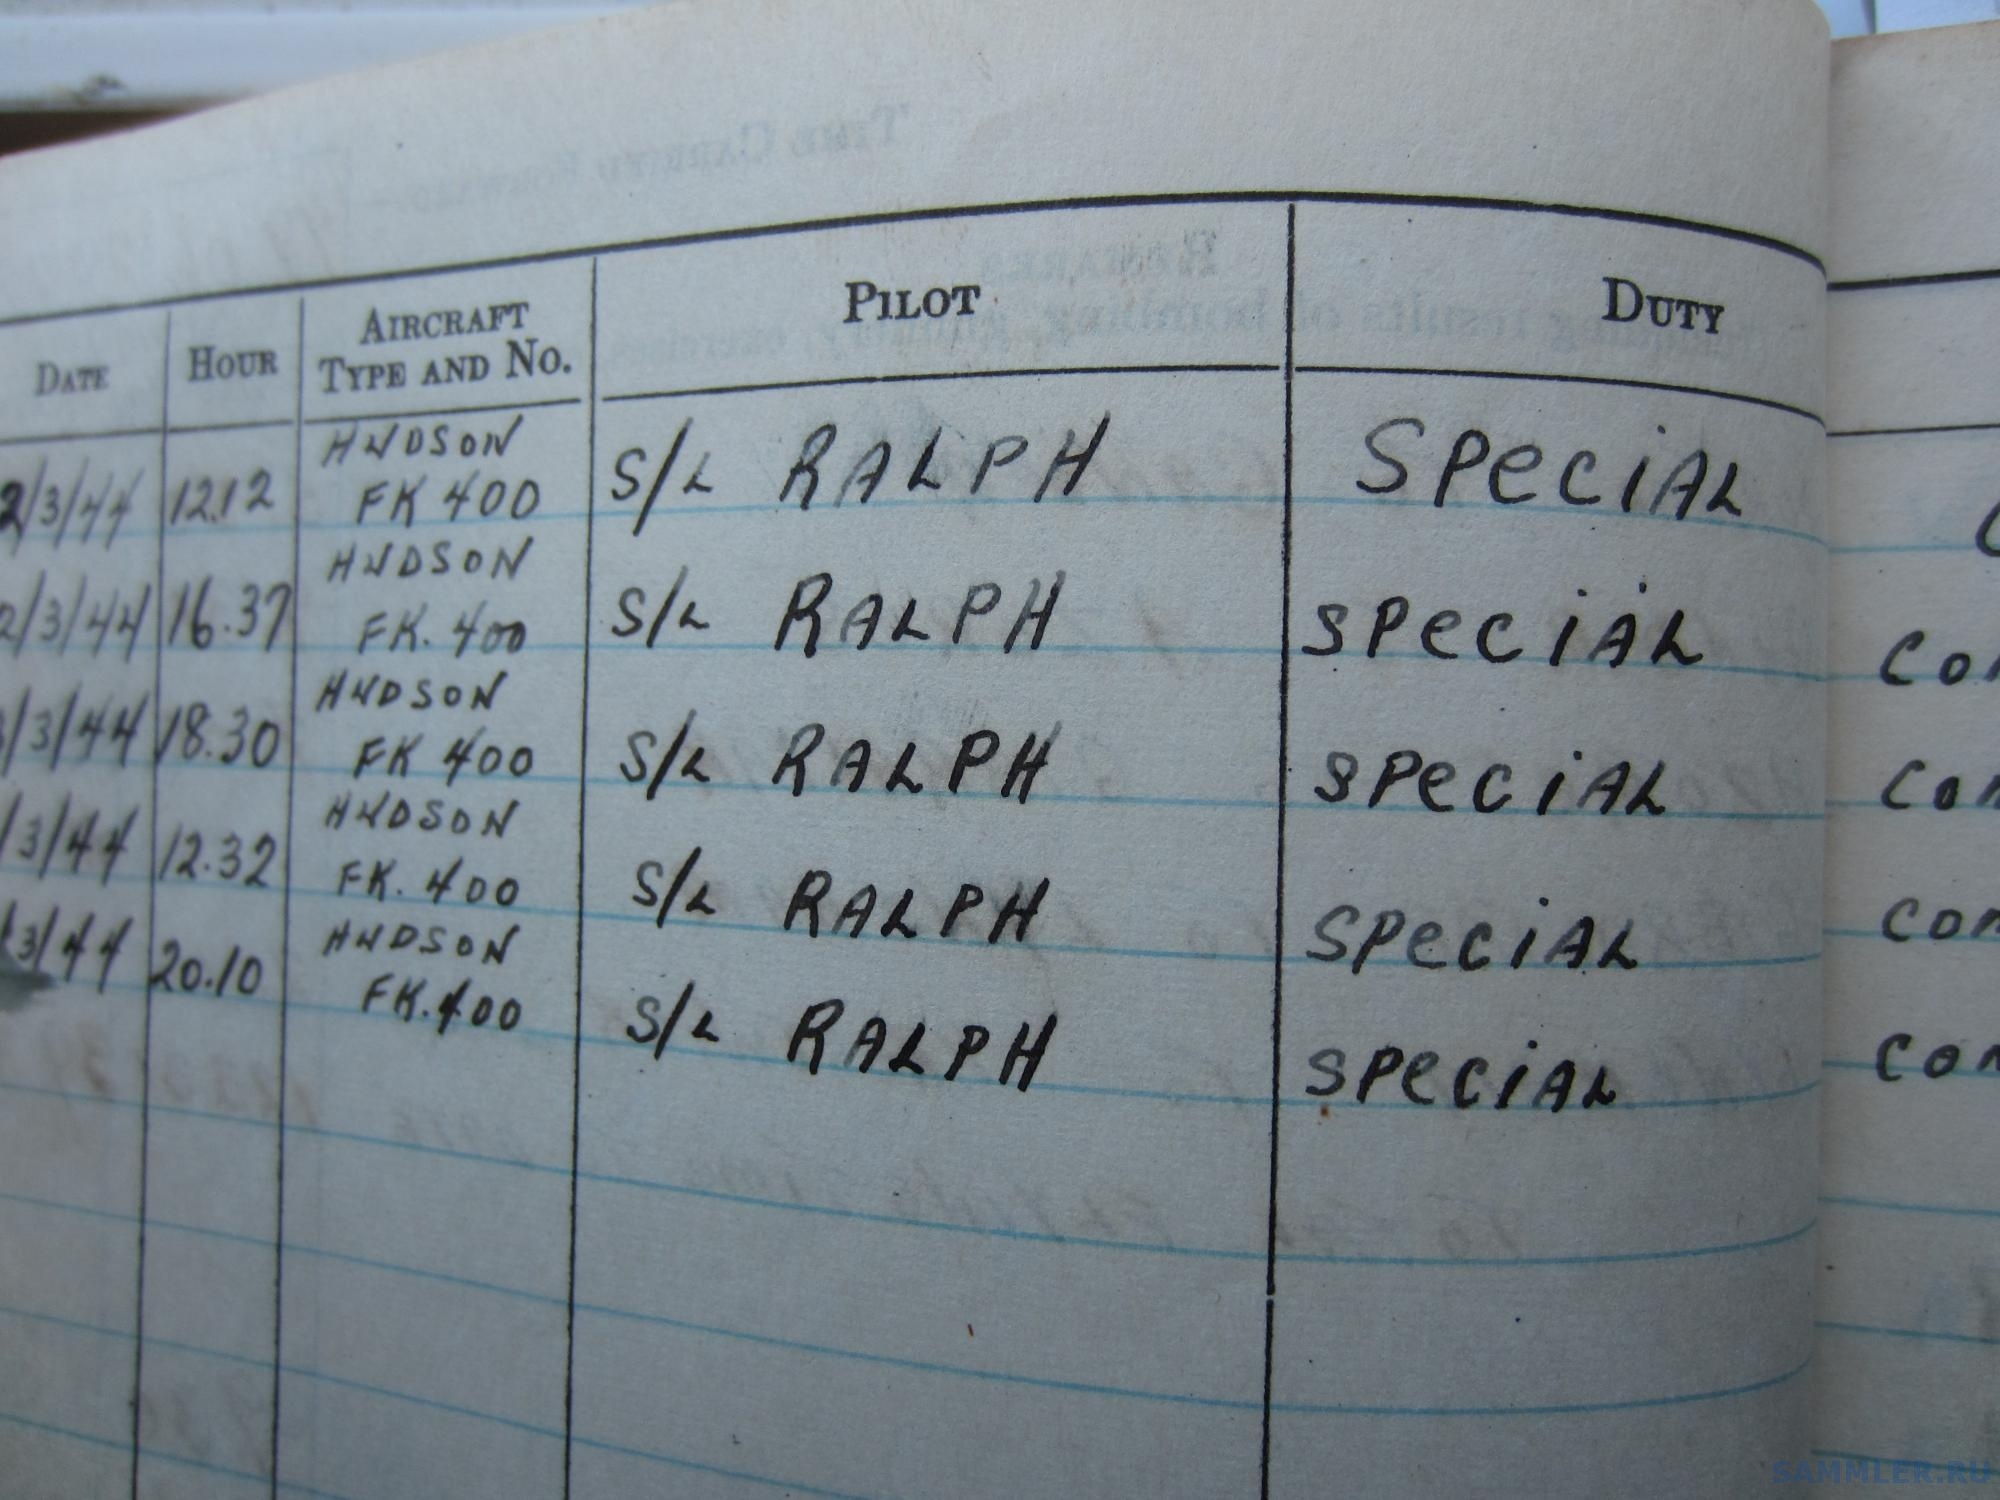 DATE HOUR AIRCRAFT TYPE AND No. PILOT DUTY
HUDSON
2/3/44 12.12 FK 400 S/L RALPH SPECIAL
HUDSON
2/3/44 16.37 FK. 400 S/L RALPH SPECIAL
HUDSON
3/3/44 18.30 FK 400 S/L RALPH SPECIAL
HUDSON
/3/44 12.32 FK. 400 S/L RALPH SPECIAL
HUDSON
3/44 20.10 FK. 400 S/L RALPH SPECIAL
SAMMLER.RU